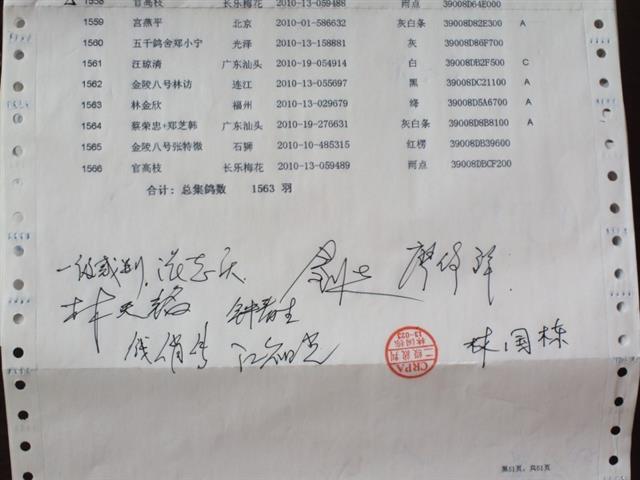 1558 官高枝 长乐梅花 2010-13-059488 雨点 39008D64E000
1559 宫燕平 北京 2010-01-586632 灰白条 39008D82E300 A
1560 五千鸽舍郑小宁 光泽 2010-13-158881 灰 39008D86F700
1561 汪琼清 广东汕头 2010-19-054914 白 39008DB2F500 C
1562 金陵八号林访 连江 2010-13-055697 黑 39008DC21100 A
1563 林金欣 福州 2010-13-029679 绛 39008D5A6700 A
1564 蔡荣忠+郑芝韩 广东汕头 2010-19-276631 灰白条 39008D8B8100 A
1565 金陵八号张特微 石狮 2010-10-485315 红楞 39008DB39600
1566 官高枝 长乐梅花 2010-13-059489 雨点 39008DBCF200
合计: 总集鸽数 1563 羽
一级裁判
林国栋
CRPA
二级裁判
林国栋
13-023
第51页, 共51页